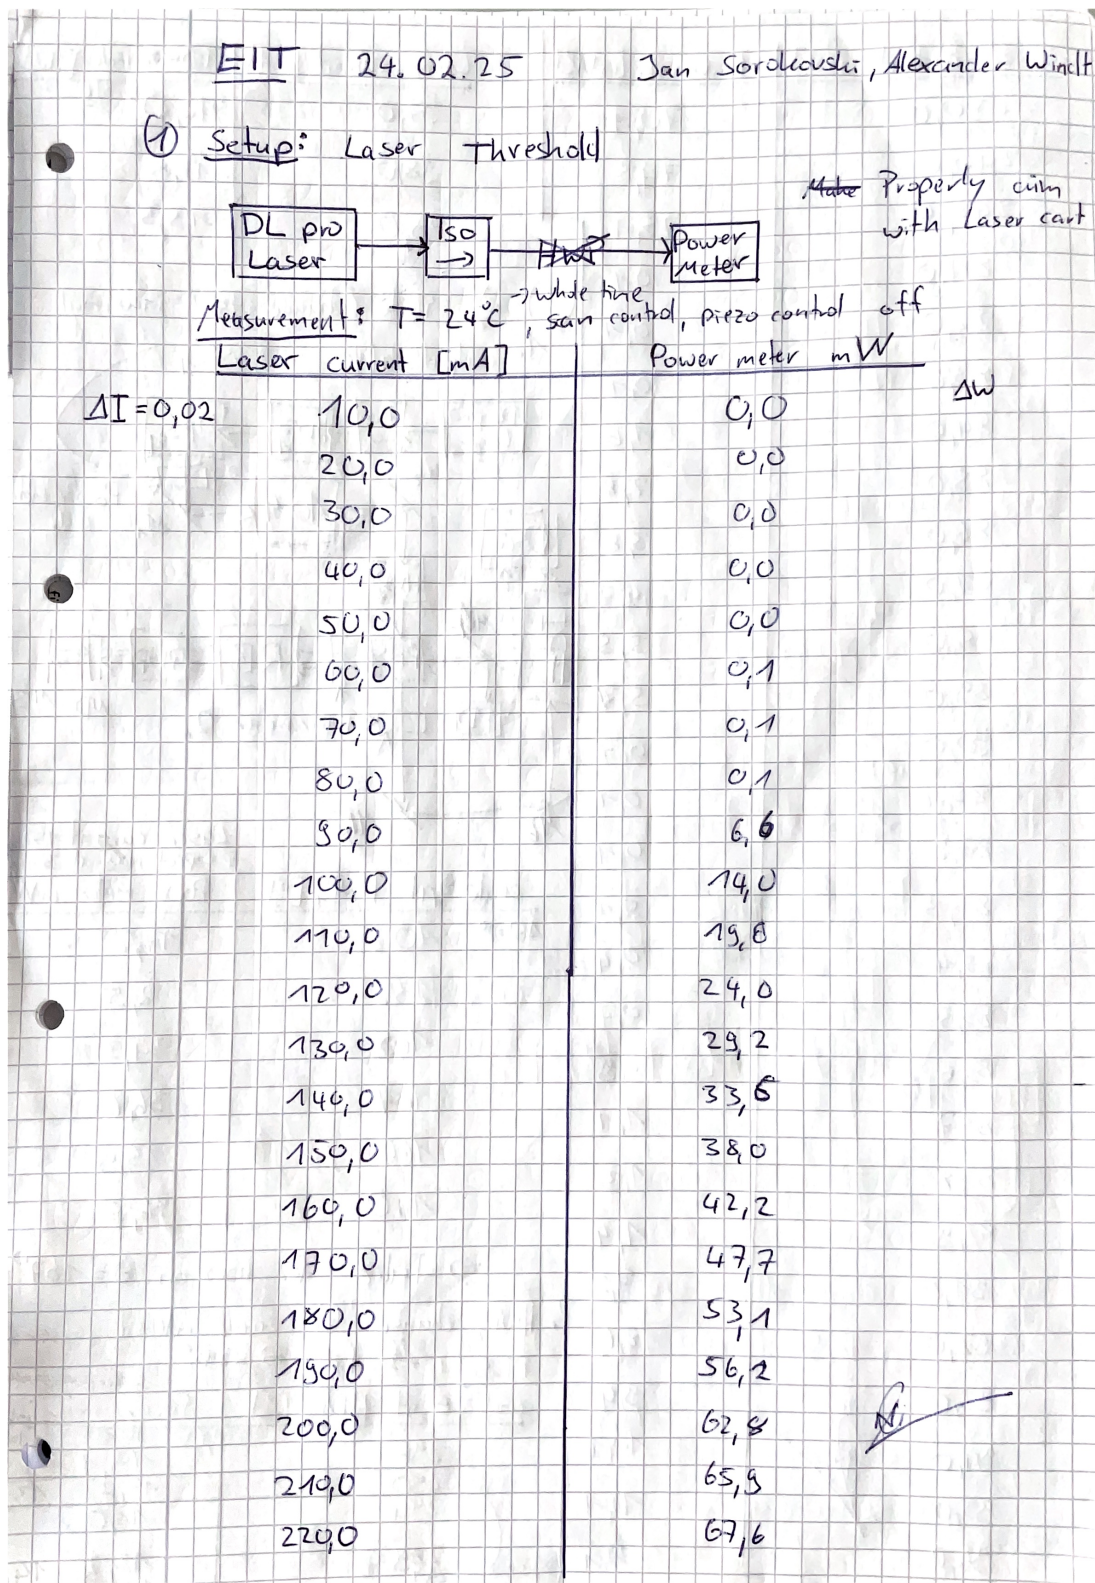 EIT 24.02.25 Jan Sorokovski, Alexander Windt
① Setup: Laser Threshold
Properly aim
with Laser cart
DL pro Laser
Iso →
Power Meter
→ whole time
Measurement: T = 24°C, scan control, piezo control off
Laser current [mA] Power meter mW
ΔI = 0,02 10,0 0,0 ΔW
20,0 0,0
30,0 0,0
40,0 0,0
50,0 0,0
60,0 0,1
70,0 0,1
80,0 0,1
90,0 6,6
100,0 14,0
110,0
120,0 24,0
130,0 29,2
140,0 33,6
150,0 38,0
160,0 42,2
170,0 47,7
180,0 53,1
190,0 56,2
200,0 62,8
210,0 65,9
220,0 67,6